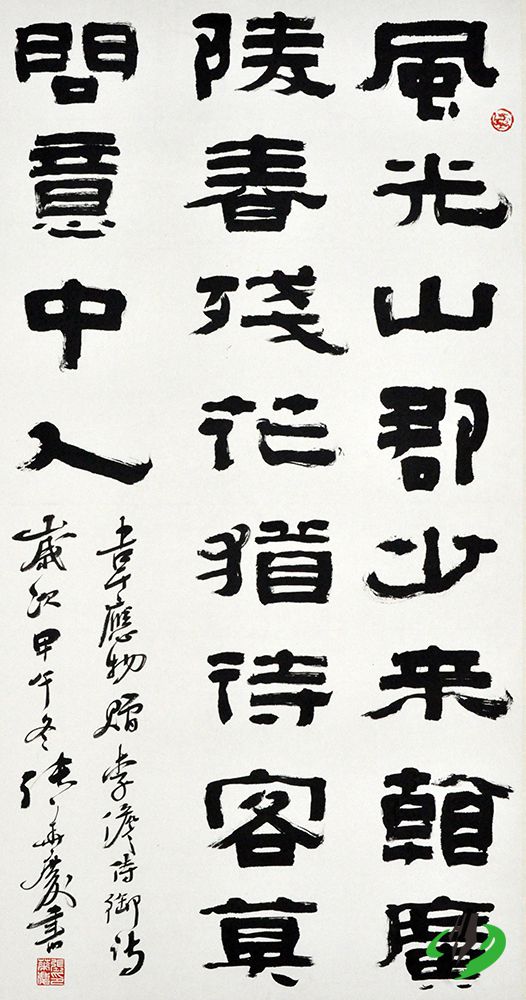 風光山郡少来看廣
陵春殘花猶待客莫
問意中人
書韋應物贈李儋侍御诗
歲次甲午冬張華慶書